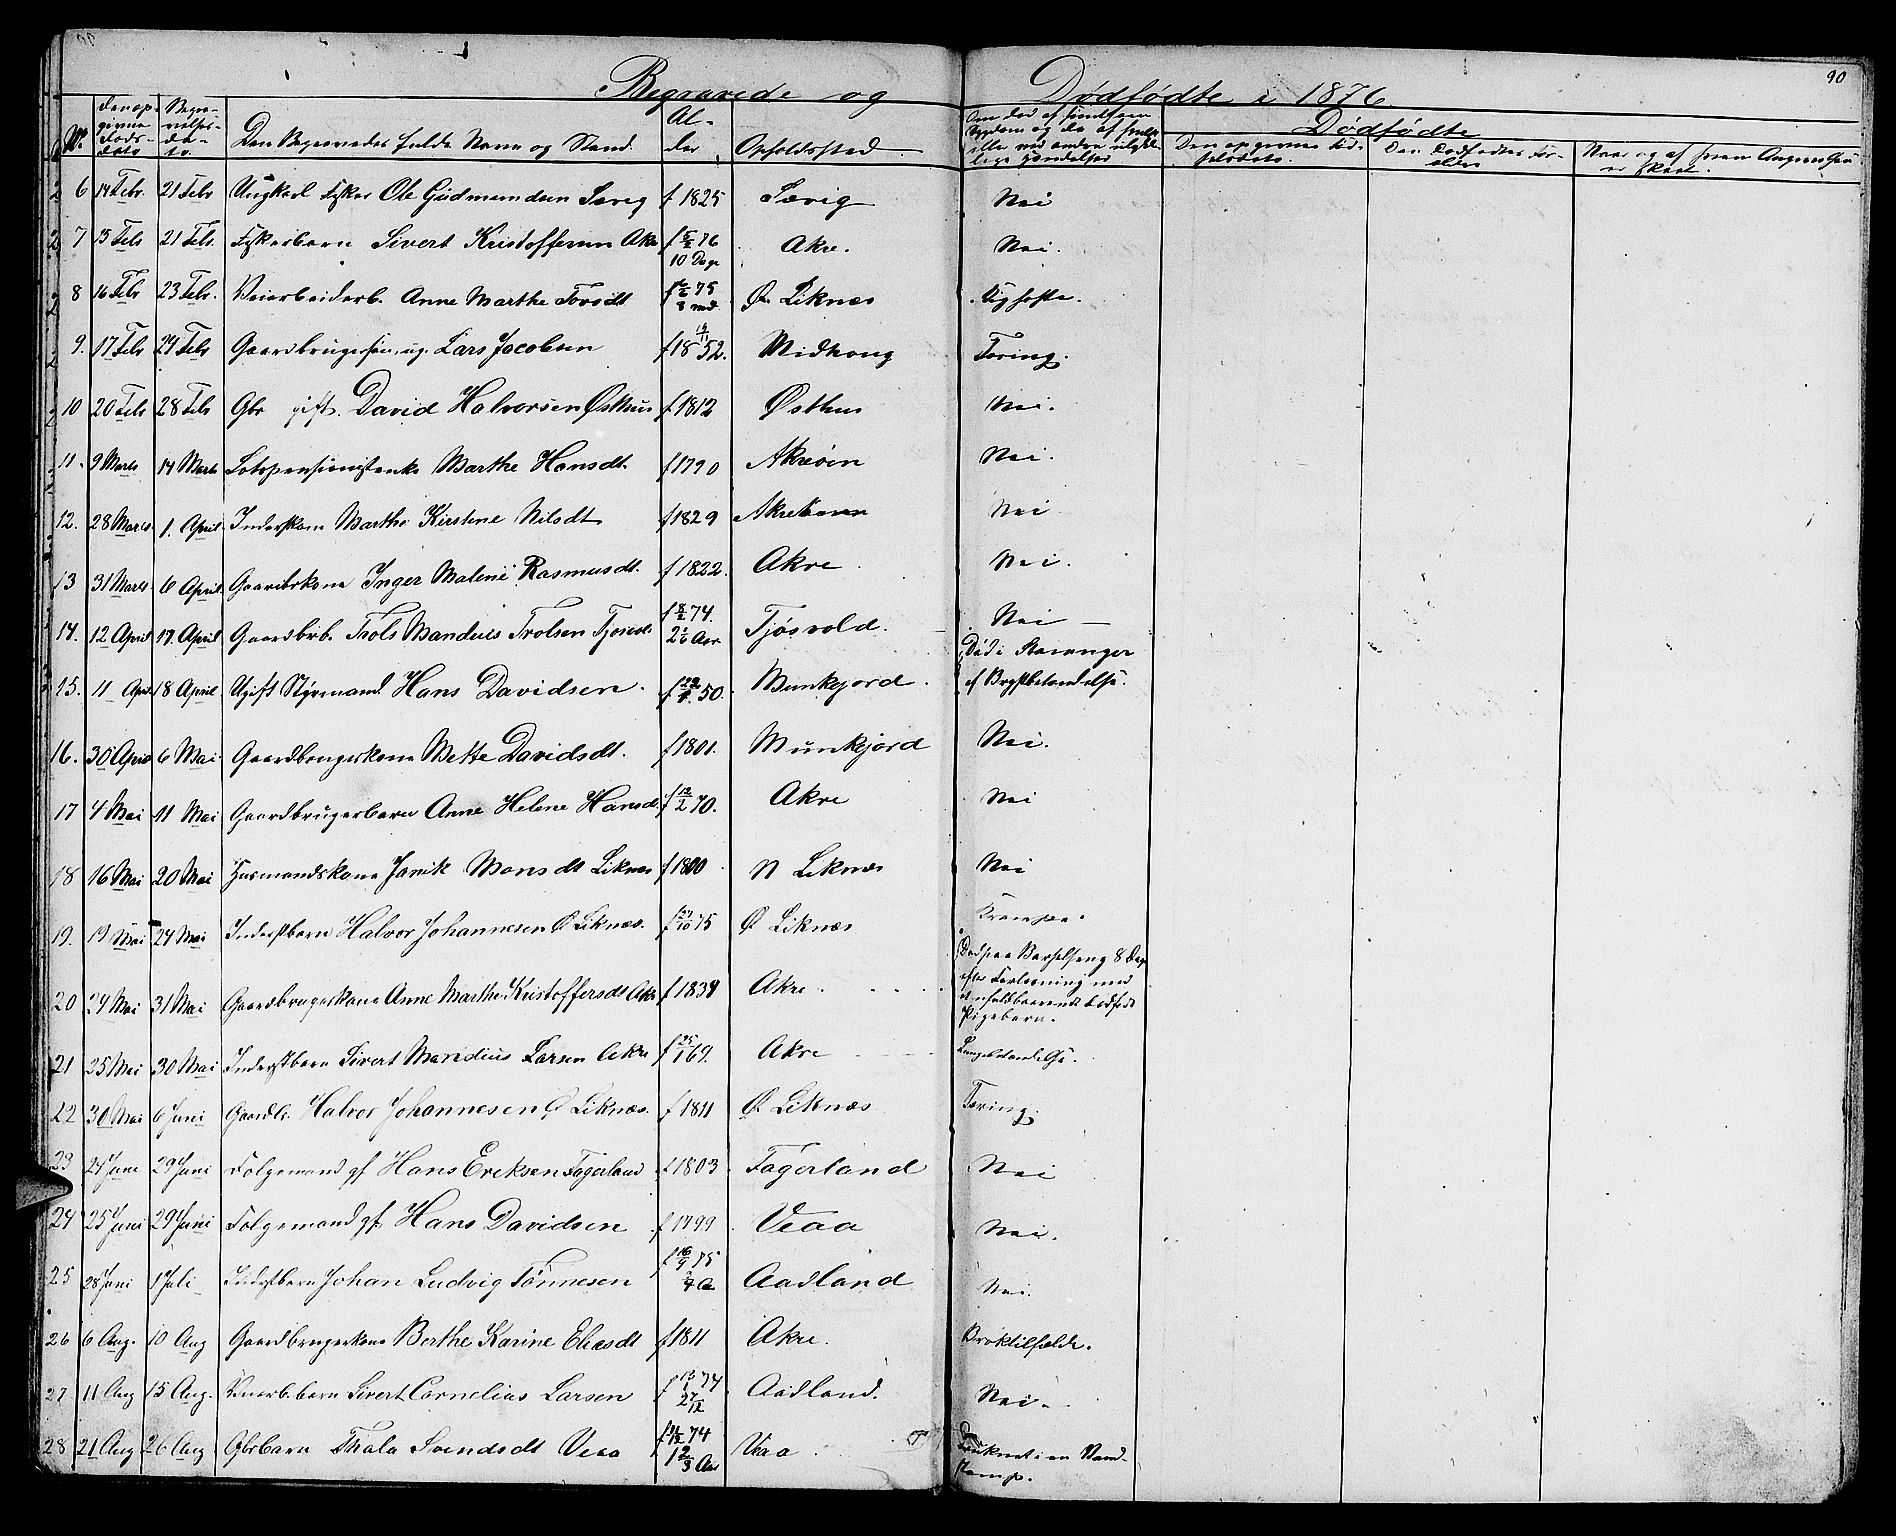 90
Begravede og Dødfødte i 1876.
No. | Den opgivne Døds-dato | Begravelses-dato. | Den Begravedes fulde Navn og Stand. | Al-der | Opholdssted | Dødfødte
6 | 14 Febr. | 21 Febr | Ungkarl Fisker Ole Gudmundsen Sævig | f 1825 | Sævig | Nei
7 | 15 Feb | 21 Feb. | Fiskerbarn Sivert Kristoffersen Akre | f 5/2 76 10 Dage | Akre. | Nei.
8 | 16 Febr | 23 Febr. | Veiarbeiderb. Anne Marthe Torsdt | 75 8 md | Ø. Liknæs | Kighoste.
9. | 17 Feb | 24 Feb | Gaardbrugersøn, ug. Lars Jacobsen | f 18 19/11 52. | Midhoug | Tæring.
10 | 20 Feb | 28 Feb | Gbr gift. David Halvorsen Østhus | f 1812 | Østhus | Nei.
11. | 9 Marts | 14 Marts | Lodspensionistenke Marthe Hansdt. | f 1790 | Akreøen | Nei.
12. | 28 Marts | 1. April | Inderstkone Marthe Kirstine Nilsdt | f 1829 | Akrehavn | Nei
13 | 31 Marts | 6 April | Gaardbrkone Inger Malene Rasmusdt. | f 1822. | Akre | Nei.
14. | 12 April | 17. April | Gaardbrb. Trols Mandius Trolsen Tjøsvold | f 8/2 74. 2 1/6 Aar | Tjøsvold. | Nei
15. | 11 April | 18 April | Ugift Styrmand Hans Davidsen. | 50. | Munkejord. | Død i Stavanger af Brystbetændelse.
16. | 30 April | 6 Mai | Gaardbrugerkone Mette Davidsdt. | f 1801. | Munkejord | Nei.
17 | 4 Mai | 11 Mai | Gaardbrugerbarn Anne Helene Hansdt | f 12/2 70. | Akre | Nei
18 | 16 Mai | 20 Mai | Husmandskone Janik Monsdt Liknæs | f 1800 | N Liknæs | Nei
19. | 19 Mai | 24 Mai | Inderstbarn Halvor Johannesen Ø Liknæs. | f 27/10 75 | Ø Liknæs | Krampe.
20 | 24 Mai | 31 Mai | Gaardbrugerkone Anne Marthe Kristoffersdt Akre | f 1834 | Akre. | Død paa Barselseng 8 Dage efter Forløsning med et fuldbaaret dødfødt Pigebarn.
21 | 25 Mai | 30 Mai | Inderstbarn Sivert Mandius Larsen Akre | f 25/1 69. | Akre | Lungebetændelse.
22 | 30 Mai | 6 Juni | Gaardbr. Halvor Johannesen Ø Liknæs. | f 1811 | Ø Liknæs | Tæring.
23 | 24 Juni | 29 Juni | Folgemand gf Hans Eriksen Fagerland | f 1803 | Fagerland | Nei
24 | 25 Juni | 29 Juni | Folgemand gf. Hans Davidsen | f 1799 | Veaa | Nei.
25 | 28 Juni | 1 Juli | Inderstbarn Johan Ludvig Tønnesen | f 16/9 75 3/4 A | Aadland | Nei.
26 | 6 Aug. | 10 Aug | Gaardbrugerkone Berthe Karine Eliasdt | f 1811 | Akre. | Broktilfælde.
27 | 11 Aug | 15 Aug. | Veiarb.barn Sivert Cornelius Larsen | f 13/1 74 2 7/12 | Aadland. | Nei.
28 | 21 Aug | 26 Aug. | Gbrbarn Thala Svendsdt Veaa | 74 1 2/3 Aar | Veaa. | Druknet i en Vand-damp.